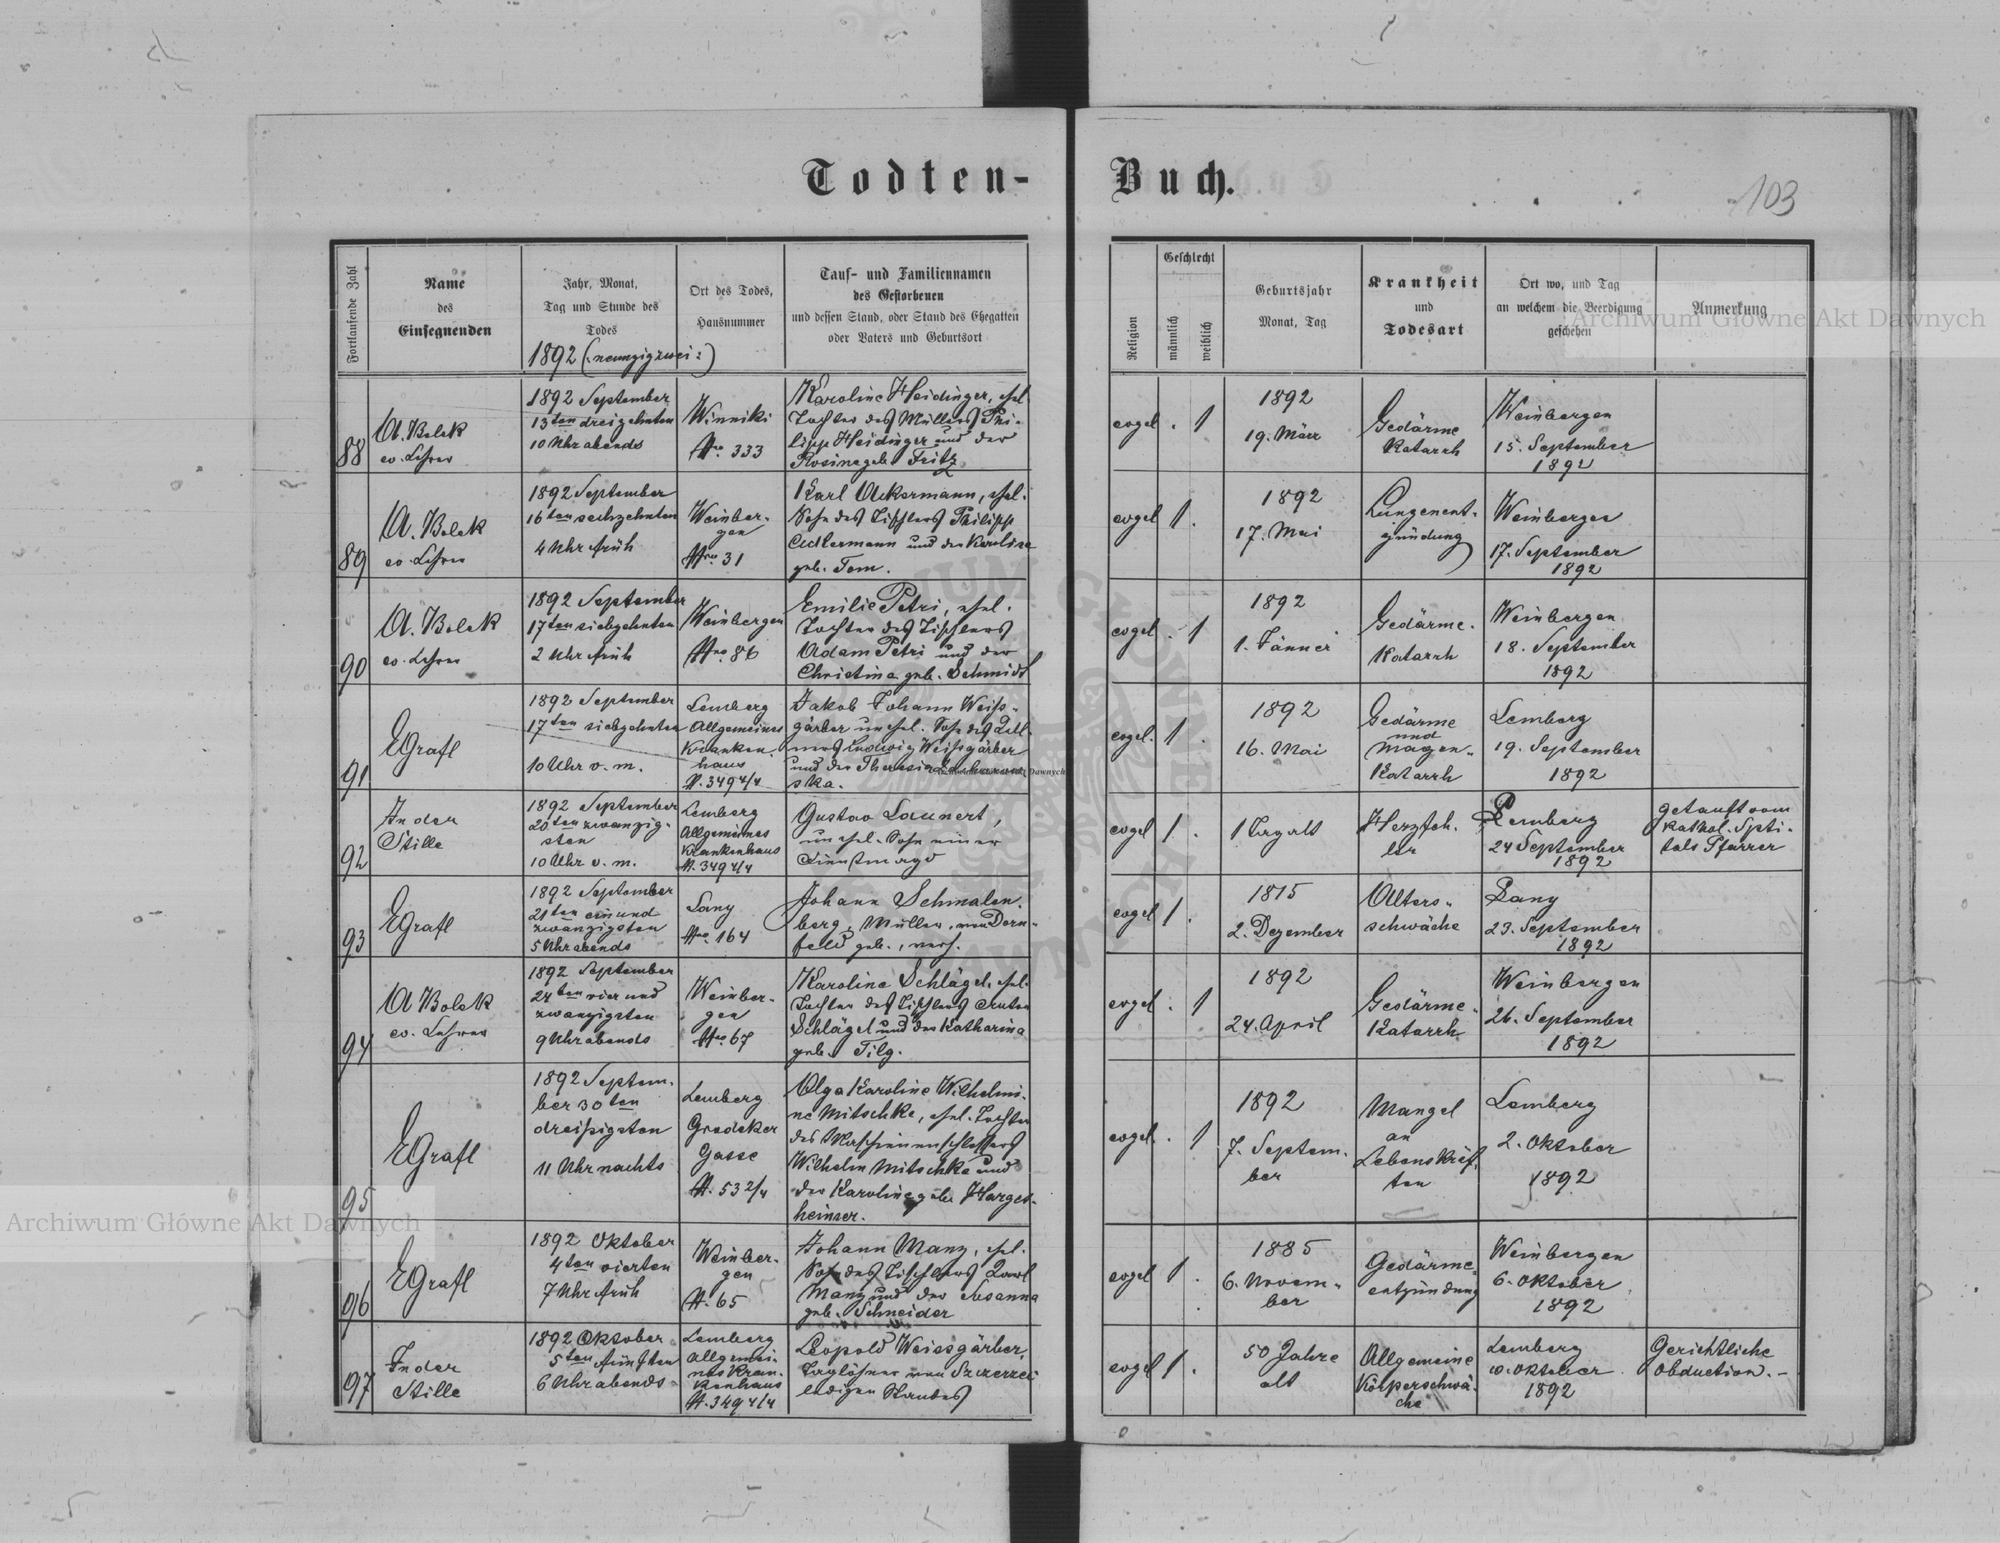 Todten-
Buch.
103
Fortlaufende Zahl
Name
des
Einsegnenden
Jahr, Monat,
Tag und Stunde des
Todes
1892 (:neunzigzwei:)
Ort des Todes,
Hausnummer
Tauf- und Familiennamen
des Gestorbenen
und dessen Stand, oder Stand des Ehegatten
oder Vaters und Geburtsort
Religion
Geschlecht
männlich
weiblich
Geburtsjahr
Monat, Tag
Krankheit
und
Todesart
Ort wo, und Tag
an welchem die Beerdigung
geschehen
Anmerkung
88
A. Bolek
ev. Lehrer
1892 September
13ten dreizehnten
10 Uhr abends
Winniki
Nro 333
Karoline Heidinger, ehel.
Tochter des Müllers Phi-
lipp Heidinger und der
Rosina geb. Fritz
evgel. . 1
1892
19. März
Gedärme
Katarrh
Weinbergen
15. September
1892
89
A. Bolek
ev. Lehrer
1892 September
16ten sechzehnten
4 Uhr früh
Weinber-
gen
Nro 31
Karl Ackermann, ehel.
Sohn des Tischlers Philipp
Ackermann und der Karolina
geb. Tom.
evgel 1 .
1892
17. Mai
Lungenent-
zündung
Weinbergen
17. September
1892
90
A. Bolek
ev. Lehrer
1892 September
17ten siebzehnten
2 Uhr früh
Weinbergen
Nro 86
Emilie Petri, ehel.
Tochter des Tischlers
Adam Petri und der
Christina geb. Schmidt
evgel . 1
1892
1. Jänner
Gedärme-
Katarrh
Weinbergen
18. September
1892
91
EGrafl
1892 September
17ten siebzehnten
10 Uhr v. m.
Lemberg
Allgemeines
Kranken
haus
N. 349 4/4
Jakob Johann Weiss-
gärber unehel. Sohn des
Ludwig Weissgärber
und der Theresia
ska.
evgel. 1 .
1892
16. Mai
Gedärme
und
Magen-
Katarrh
Lemberg
19. September
1892
92
In der
Stille
1892 September
20ten zwanzig-
sten
10 Uhr v. m.
Lemberg
Allgemeines
Krankenhaus
N. 349 4/4
Gustav Launert,
unehel. Sohn einer
Dienstmagd
evgel 1 .
1 Tag alt
Herzfeh-
ler
Lemberg
24 September
1892
getauft vom
kathol. Spi-
tals Pfarrer
93
EGrafl
1892 September
21ten ein und
zwanzigsten
5 Uhr abends
Lany
Nro 164
Johann Schmalen-
berg, Müller, von Dorn-
feld geb., verh.
evgel 1 .
1815
2. Dezember
Alters-
schwäche
Lany
23. September
1892
94
A Bolek
ev. Lehrer
1892 September
24ten vier und
zwanzigsten
9 Uhr abends
Weinber-
gen
Nro 67
Karoline Schlägel, ehel.
Tochter des Tischlers Anton
Schlägel und der Katharina
geb. Tilg.
evgel . 1
1892
24. April
Gedärme-
Katarrh
Weinbergen
26. September
1892
95
EGrafl
1892 Septem-
ber 30ten
dreißigsten
11 Uhr nachts
Lemberg
Grodeker
Gasse
N. 53 2/4
Olga Karoline Wilhelmi-
ne Mitschke, ehel. Tochter
des Maschinenschlossers
Wilhelm Mitschke und
der Karoline geb. Harges-
heimer.
evgel. . 1
1892
7. Septem-
ber
Mangel
an
Lebenskräf-
ten
Lemberg
2. Oktober
1892
96
EGrafl
1892 Oktober
4ten vierten
7 Uhr früh
Weinber-
gen
N. 65
Johann Manz, ehel.
Sohn des Tischlers Karl
Manz und der Susanna
geb. Schneider
evgel 1 .
1885
6. Novem-
ber
Gedärme-
entzündung
Weinbergen
6. Oktober
1892
97
In der
Stille
1892 Oktober
5ten fünften
6 Uhr abends
Lemberg
Allgemei-
nes Kran-
kenhaus
N. 349 4/4
Leopold Weissgärber,
Taglöhner von Szczerzec
ledigen Standes
evgel 1 .
50 Jahre
alt
Allgemeine
Körperschwä-
che
Lemberg
Oktober
1892
Gerichtliche
Obduction. -
Archiwum Główne Akt Dawnych
Archiwum Główne Akt Dawnych